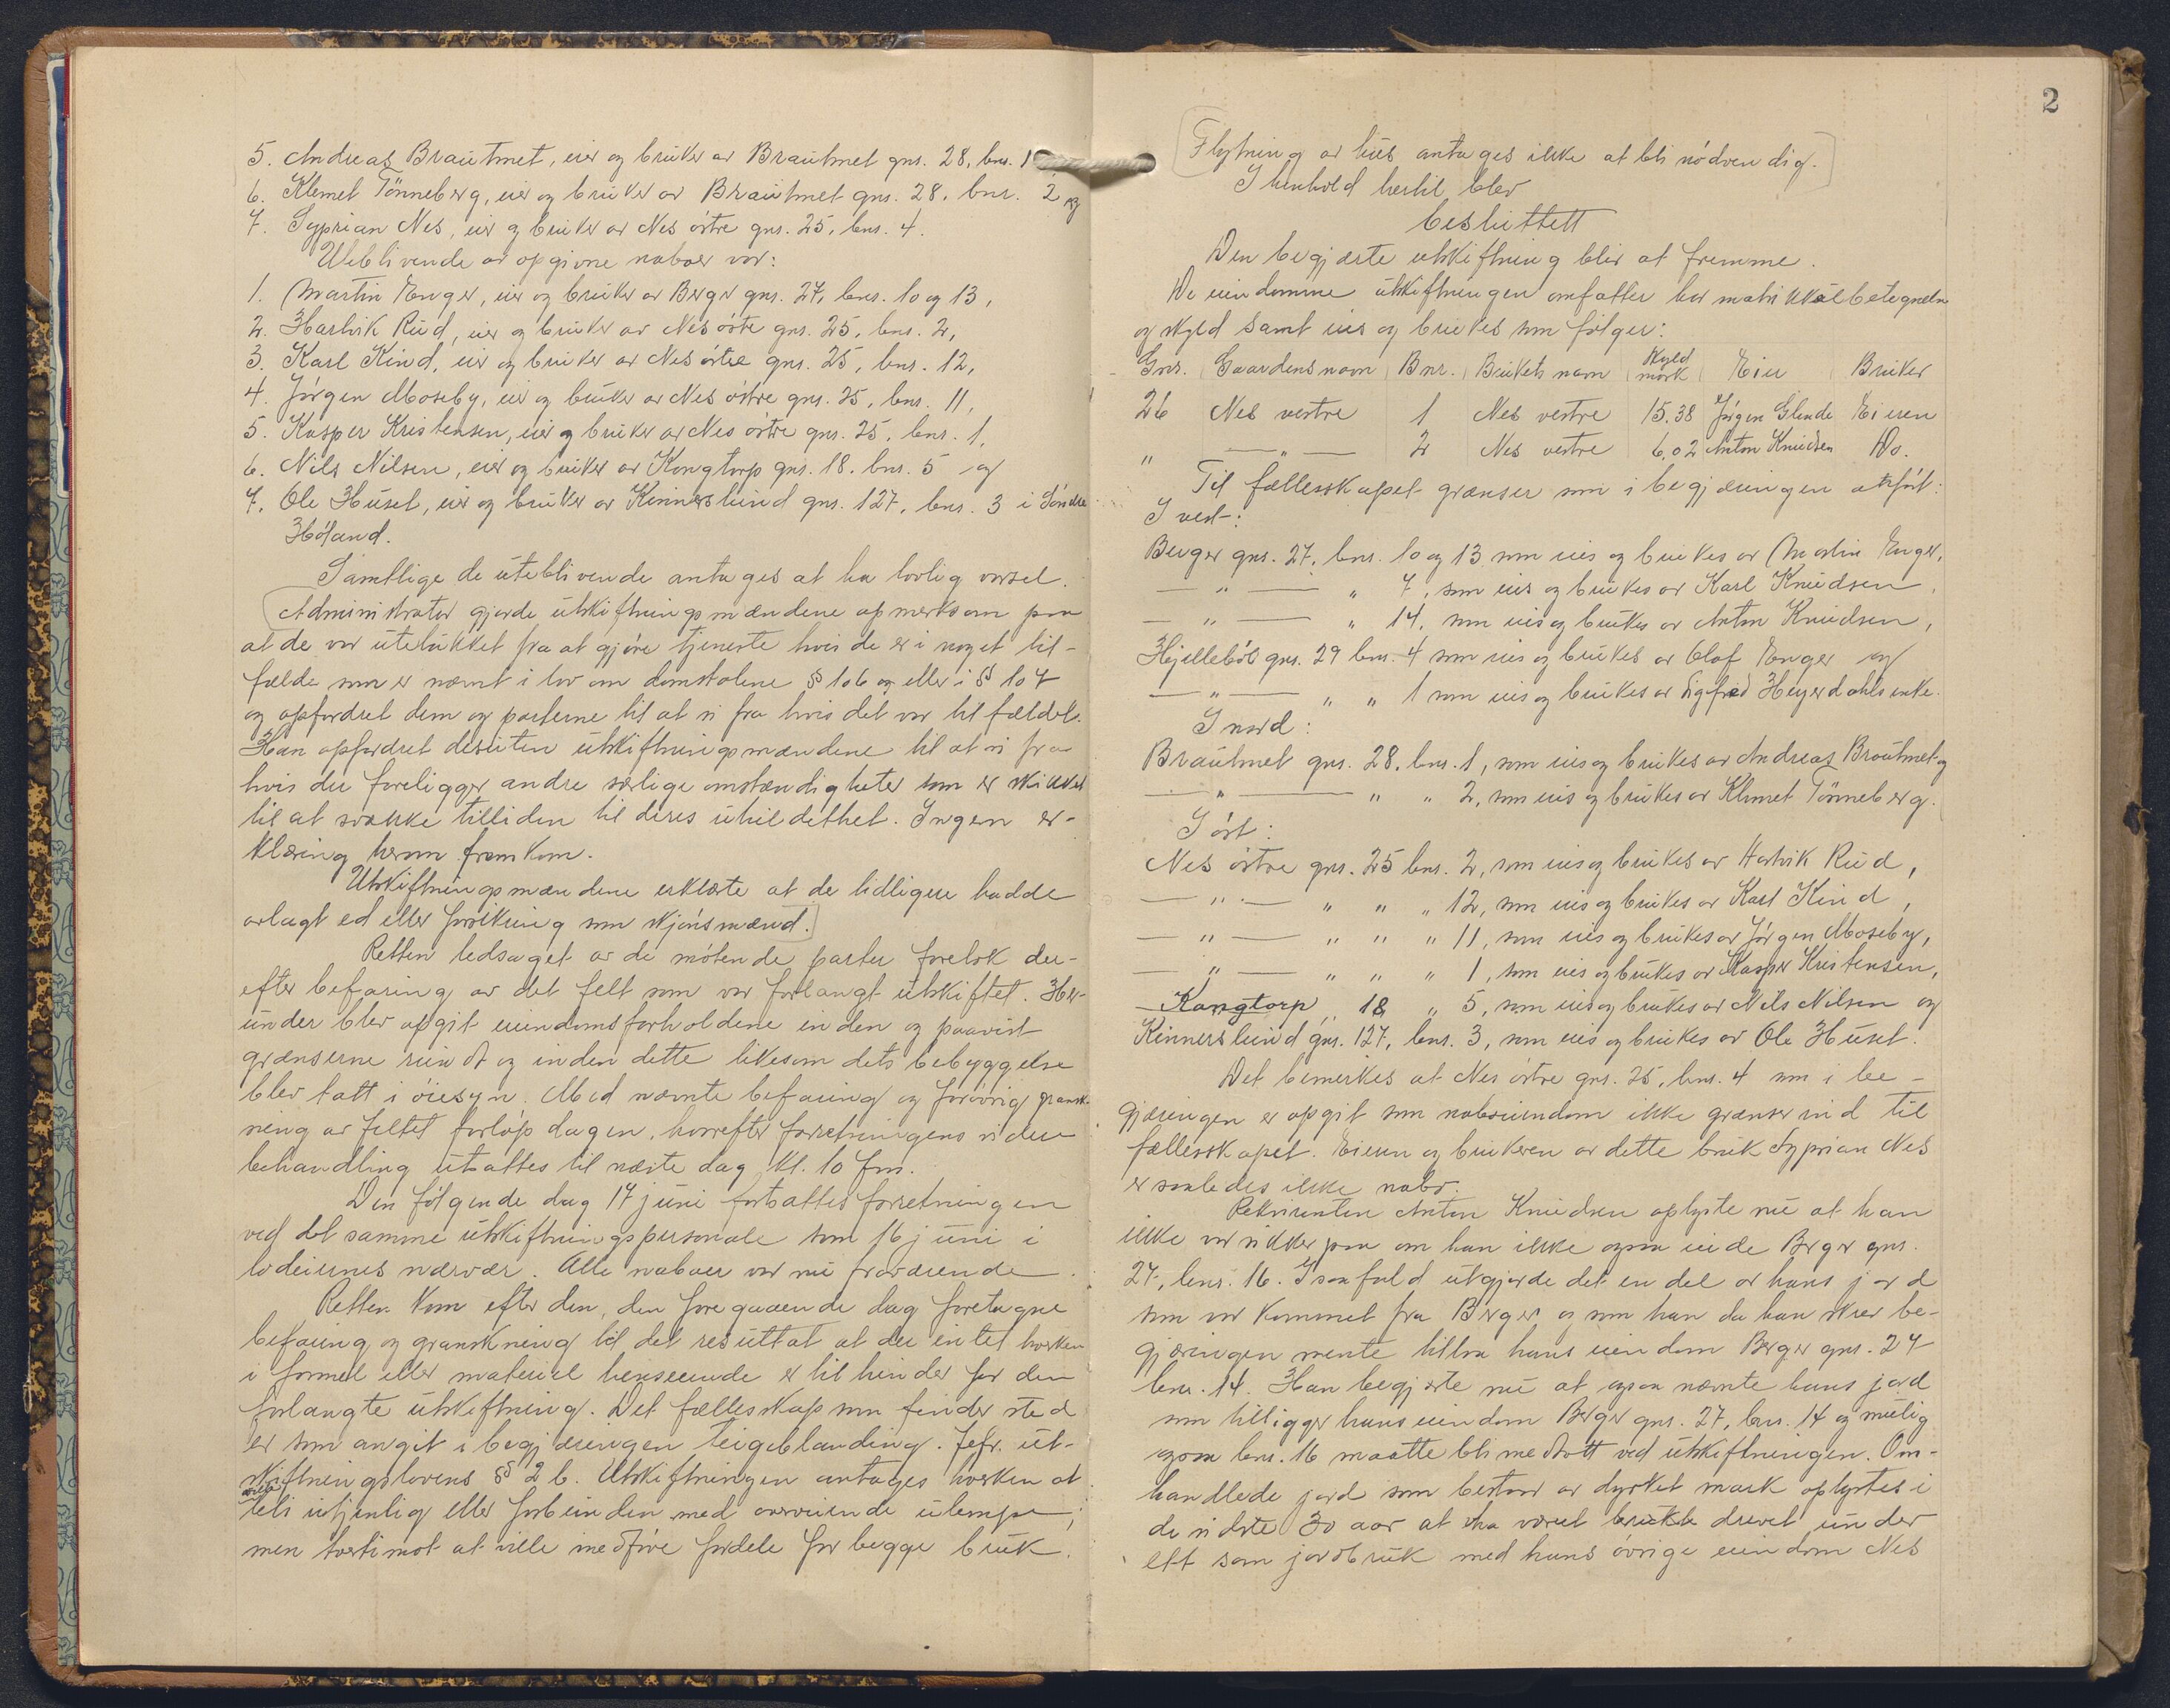 5. Andreas Brautmet, eier og bruker av Brautmet gnr. 28, bnr. 1
6. Klemet Tønneberg, eier og bruker av Brautmet gnr. 28, bnr. 2 og
7. Syprian Nes, eier og bruker av Nes østre gnr. 25, bnr. 4.
Uteblivende av opgivne naboer var:
1. Martin Enger, eier og bruker av Berger gnr. 27, bnr. 10 og 13,
2. Hartvik Rud, eier og bruker av Nes østre gnr. 25, bnr. 2,
3. Karl Kind, eier og bruker av Nes østre gnr. 25, bnr. 12,
4. Jørgen Moseby, eier og bruker av Nes østre gnr. 25, bnr. 11,
5. Kasper Kristensen, eier og bruker av Nes østre gnr. 25, bnr. 1,
6. Nils Nilsen, eier og bruker av Kongtorp gnr. 18, bnr. 5 og
7. Ole Huset, eier og bruker av Kinnerslund gnr. 127, bnr. 3 i Søndre
Høland.
Samtlige de uteblivende antages at ha lovlig varsel.
Administrator gjorde utskiftningsmændene opmerksom paa
at de var utelukket fra at gjøre tjeneste hvis de er i noget til-
fælde som er nævnt i lov om domstolene § 106 og eller i § 107
og opfordret dem og parterne til at si fra hvis det var tilfældet.
Han opfordret desuten utskiftningsmændene til at si fra
hvis der foreligger andre særlige omstændigheter som er skikket
til at svække tilliden til deres uhildethet. Ingen er-
klæring herom fremkom.
Utskiftningsmændene erklærte at de tidligere hadde
avlagt ed eller forsikring som skjønsmænd.
Retten ledsaget av de møtende parter foretok der-
efter befaring av det felt som var forlangt utskiftet. Her-
under blev opgit eiendomsforholdene inden og paavist
grænserne rundt og inden dette likesom dets bebyggelse
blev tatt i øiesyn. Med nævnte befaring og forøvrig gransk-
ning av feltet forløp dagen, hvorefter forretningens videre
behandling utsattes til næste dag kl. 10 fm.
Den følgende dag 17 juni fortsattes forretningen
ved det samme utskiftningspersonale som 16 juni i
lodeiernes nærvær. Alle naboer var nu fraværende.
Retten kom efter den, den foregaaende dag foretagne
befaring og granskning til det resultat at der intet hverken
i formel eller materiel henseende er til hinder for den
forlangte utskiftning. Det fællesskap som finder sted
er som angit i begjæringen teigeblanding. Jefr. ut-
skiftningslovens § 2 b. Utskiftningen antages hverken at
ville
bli utjenlig eller forbunden med overveiende ulempe,
men tvertimot at ville medføre fordele for begge bruk.
2
Flytning av hus antages ikke at bli nødvendig.
I henhold hertil blev
besluttett
Den begjærte utskiftning blir at fremme.
De eiendomme utskiftningen omfatter har matrikkelbetegnelse
og skyld samt eies og brukes som følger:
Gnr. Gaardens navn Bnr. Brukets navn Skyld mark Eier Bruker
26 Nes vestre 1 Nes vestre 15.38 Jørgen Glende Eieren
" — " — 2 Nes vestre 6.02 Anton Knudsen Do.
Til fællesskapet grænser som i begjæringen anført:
I vest:
Berger gnr. 27, bnr. 10 og 13 som eies og brukes av Martin Enger,
— " — " 7, som eies og brukes av Karl Knudsen,
— " — " 14, som eies og brukes av Anton Knudsen,
Hjelleböl gnr. 29 bnr. 4 som eies og brukes av Olaf Enger og
— " — " " 1 som eies og brukes av Sigfred Heyerdahls enke.
I nord:
Brautmet gnr. 28, bnr. 1, som eies og brukes av Andreas Brautmet og
— " — " " 2, som eies og brukes av Klemet Tønneberg.
I øst:
Nes østre gnr. 25 bnr. 2, som eies og brukes av Hartvik Rud,
— " — " " " 12, som eies og brukes av Karl Kind,
— " — " " " 11, som eies og brukes av Jørgen Moseby,
— " — " " " 1, som eies og brukes av Kasper Kristensen,
Kongtorp " 18 " 5, som eies og brukes av Nils Nilsen og
Kinnerslund gnr. 127, bnr. 3, som eies og brukes av Ole Huset.
Det bemerkes at Nes østre gnr. 25, bnr. 4 som i be-
gjæringen er opgit som naboeiendom ikke grænser ind til
fællesskapet. Eieren og brukeren av dette bruk Syprian Nes
er saaledes ikke nabo.
Rekvirenten Anton Knudsen oplyste nu at han
ikke var sikker paa om han ikke ogsaa eiede Berger gnr.
27, bnr. 16. I saafald utgjorde det en del av hans jord
som var kommet fra Berger og som han da han skrev be-
gjæringen mente tillaa hans eiendom Berger gnr. 27
bnr. 14. Han begjærte nu at ogsaa nævnte hans jord
som tilligger hans eiendom Berger gnr. 27, bnr. 14 og mulig
ogsaa bnr. 16 maatte bli medtatt ved utskiftningen. Om-
handlede jord som bestaar av dyrket mark oplystes i
de sidste 30 aar at ha været brukte drevet under
ett som jordbruk med hans øvrige eiendom Nes